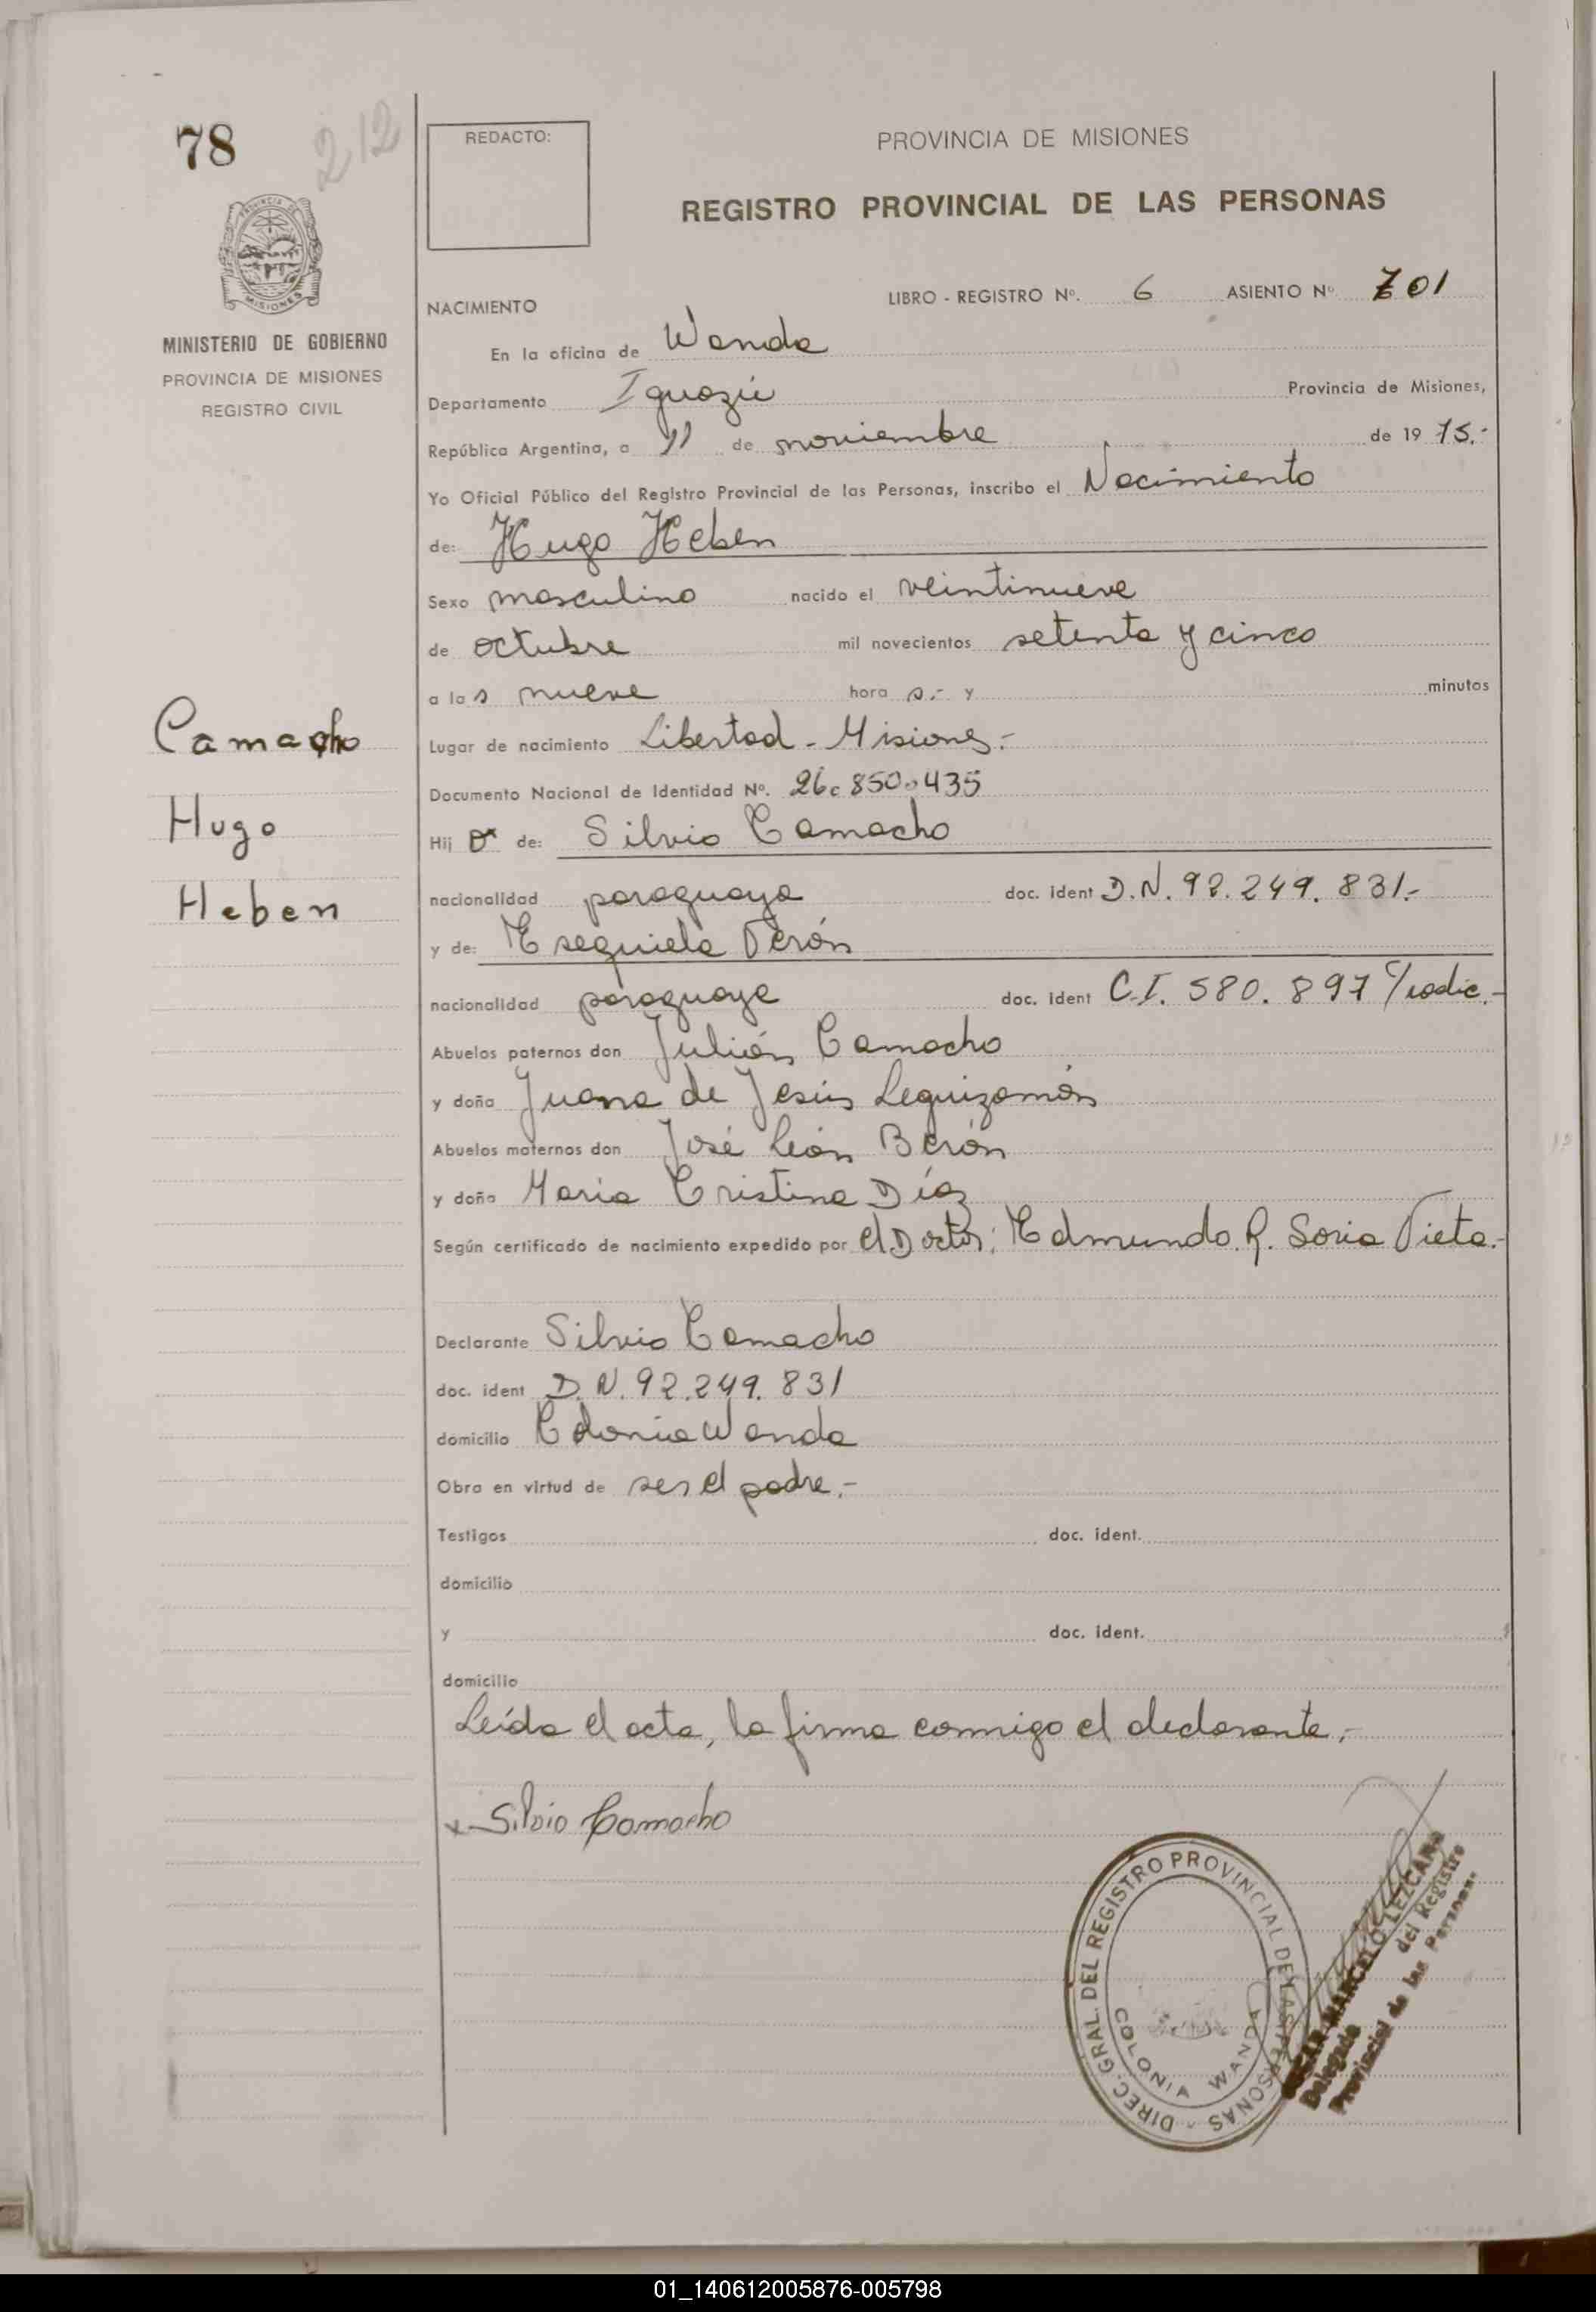 78
212
REDACTO:
PROVINCIA DE MISIONES
REGISTRO PROVINCIAL DE LAS PERSONAS
PROVINCIA DE
MISIONES
MINISTERIO DE GOBIERNO
PROVINCIA DE MISIONES
REGISTRO CIVIL
LIBRO - REGISTRO Nº. 6 ASIENTO Nº 701
NACIMIENTO
En la oficina de Wanda
Departamento Iguazú Provincia de Misiones,
República Argentina, a 11 de noviembre de 1975.-
Yo Oficial Público del Registro Provincial de las Personas, inscribo el Nacimiento
de: Hugo Heben
Sexo masculino nacido el veintinueve
de octubre mil novecientos setenta y cinco
a las nueve hora s.- y minutos
Lugar de nacimiento Libertad - Misiones.-
Documento Nacional de Identidad Nº. 26.850.435
Hijo de: Silvio Camacho
nacionalidad paraguaya doc. ident D.N. 92.249.831.-
y de: Esequiela Verón
nacionalidad paraguaya doc. ident C.I. 580.897 c/radic.-
Abuelos paternos don Julián Camacho
y doña Juana de Jesús Leguizamón
Abuelos maternos don José León Berón
y doña Maria Cristina Díaz
Según certificado de nacimiento expedido por el Doctor: Edmundo R. Soria Vieta.-
Declarante Silvio Camacho
doc. ident D.N. 92.249.831
domicilio Colonia Wanda
Obra en virtud de ser el padre.-
Testigos doc. ident.
domicilio
y doc. ident.
domicilio
Leída el acta, la firma conmigo el declarante.-
x Silvio Camacho
Camacho
Hugo
Heben
DIREC. GRAL. DEL REGISTRO PROVINCIAL DE LAS PERSONAS -
COLONIA WANDA
OSCAR MARCELO LEZCANO
Delegado del Registro
Provincial de las Personas
01_140612005876-005798